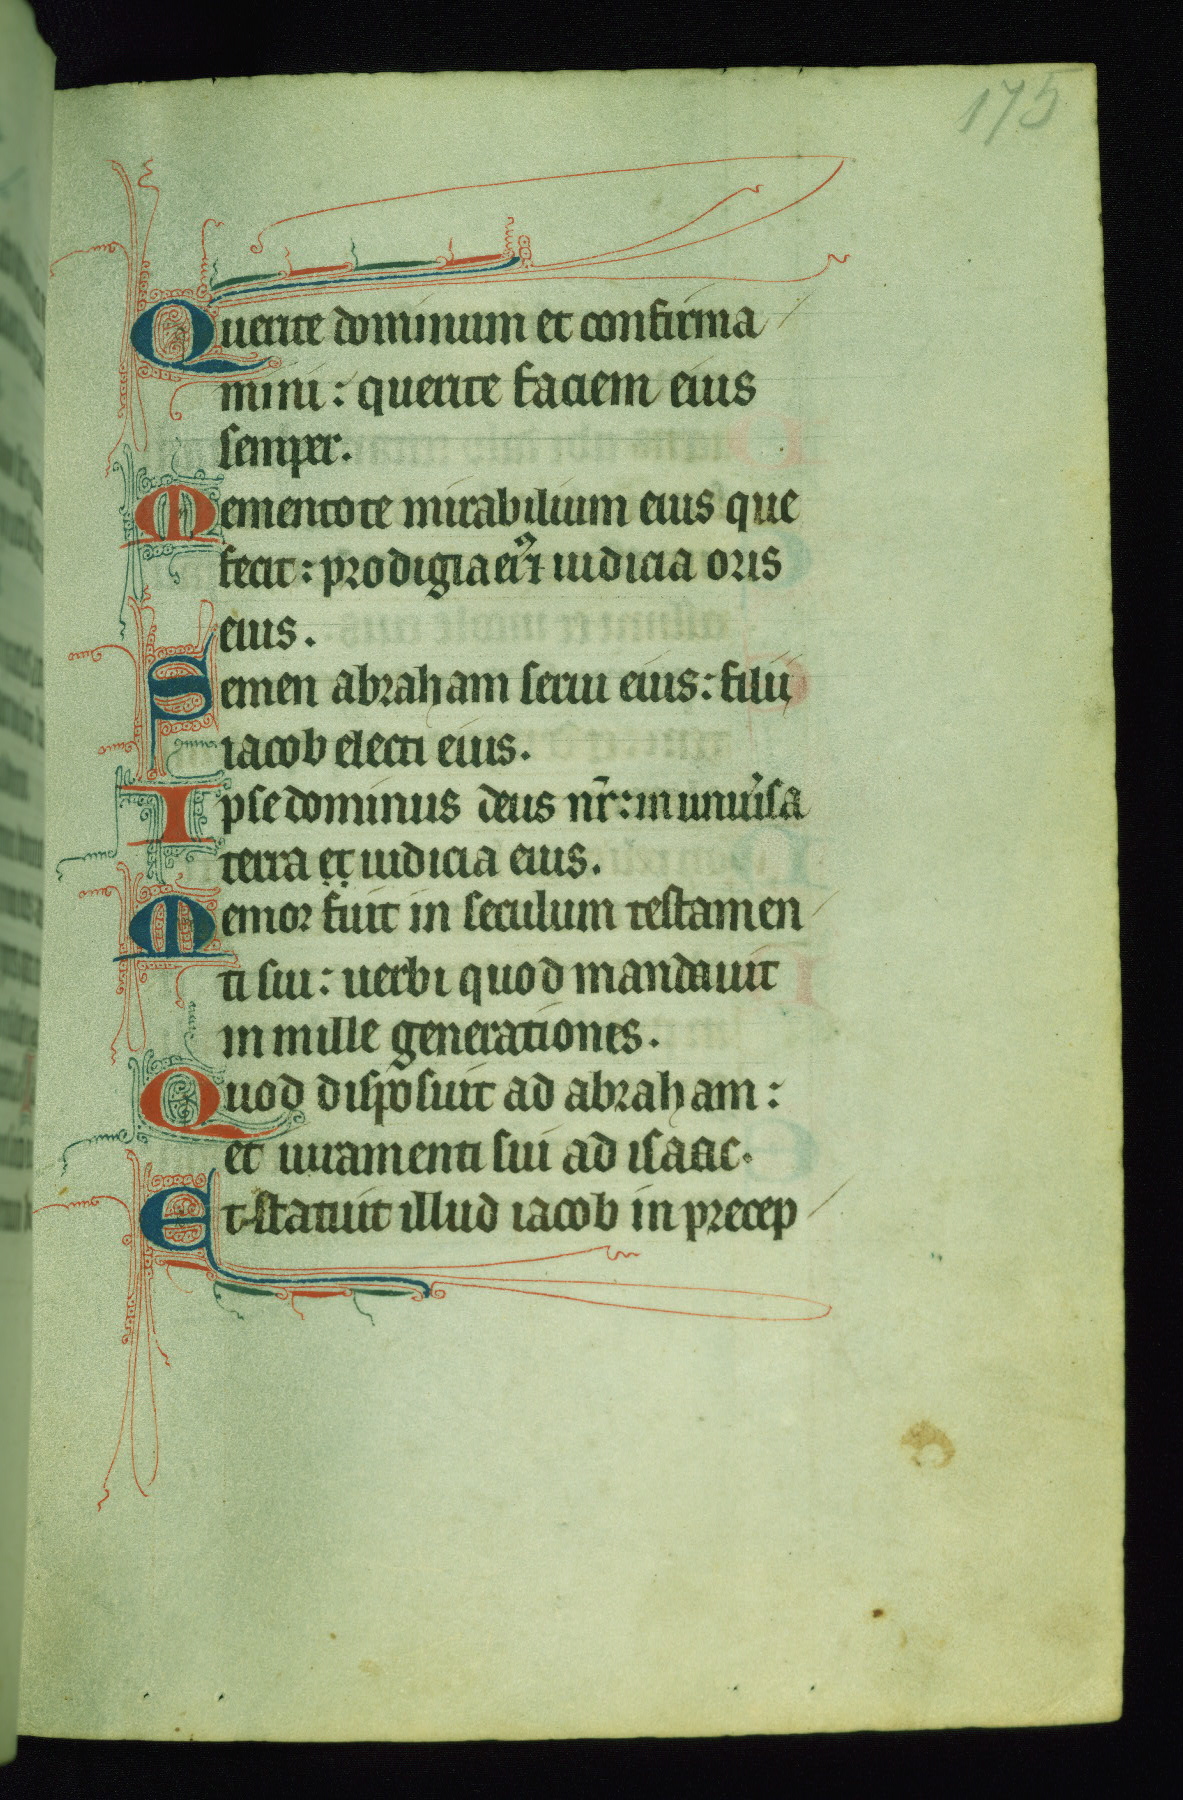 175
Querite dominum et confirma
mini: querite faciem eius
semper.
Mementote mirabilium eius que
fecit: prodigia ei᷒ ⁊ iudicia oris
eius.
Semen abraham serui eius: filii
iacob electi eius.
Ipse dominus deus nr̄: in uniu͛sa
terra et iudicia eius.
Memor fuit in seculum testamen
ti sui: uerbi quod mandauit
in mille generationes.
Quod disposuit ad abraham:
et iuramenti sui ad isaac.
Et statuit illud iacob in precep